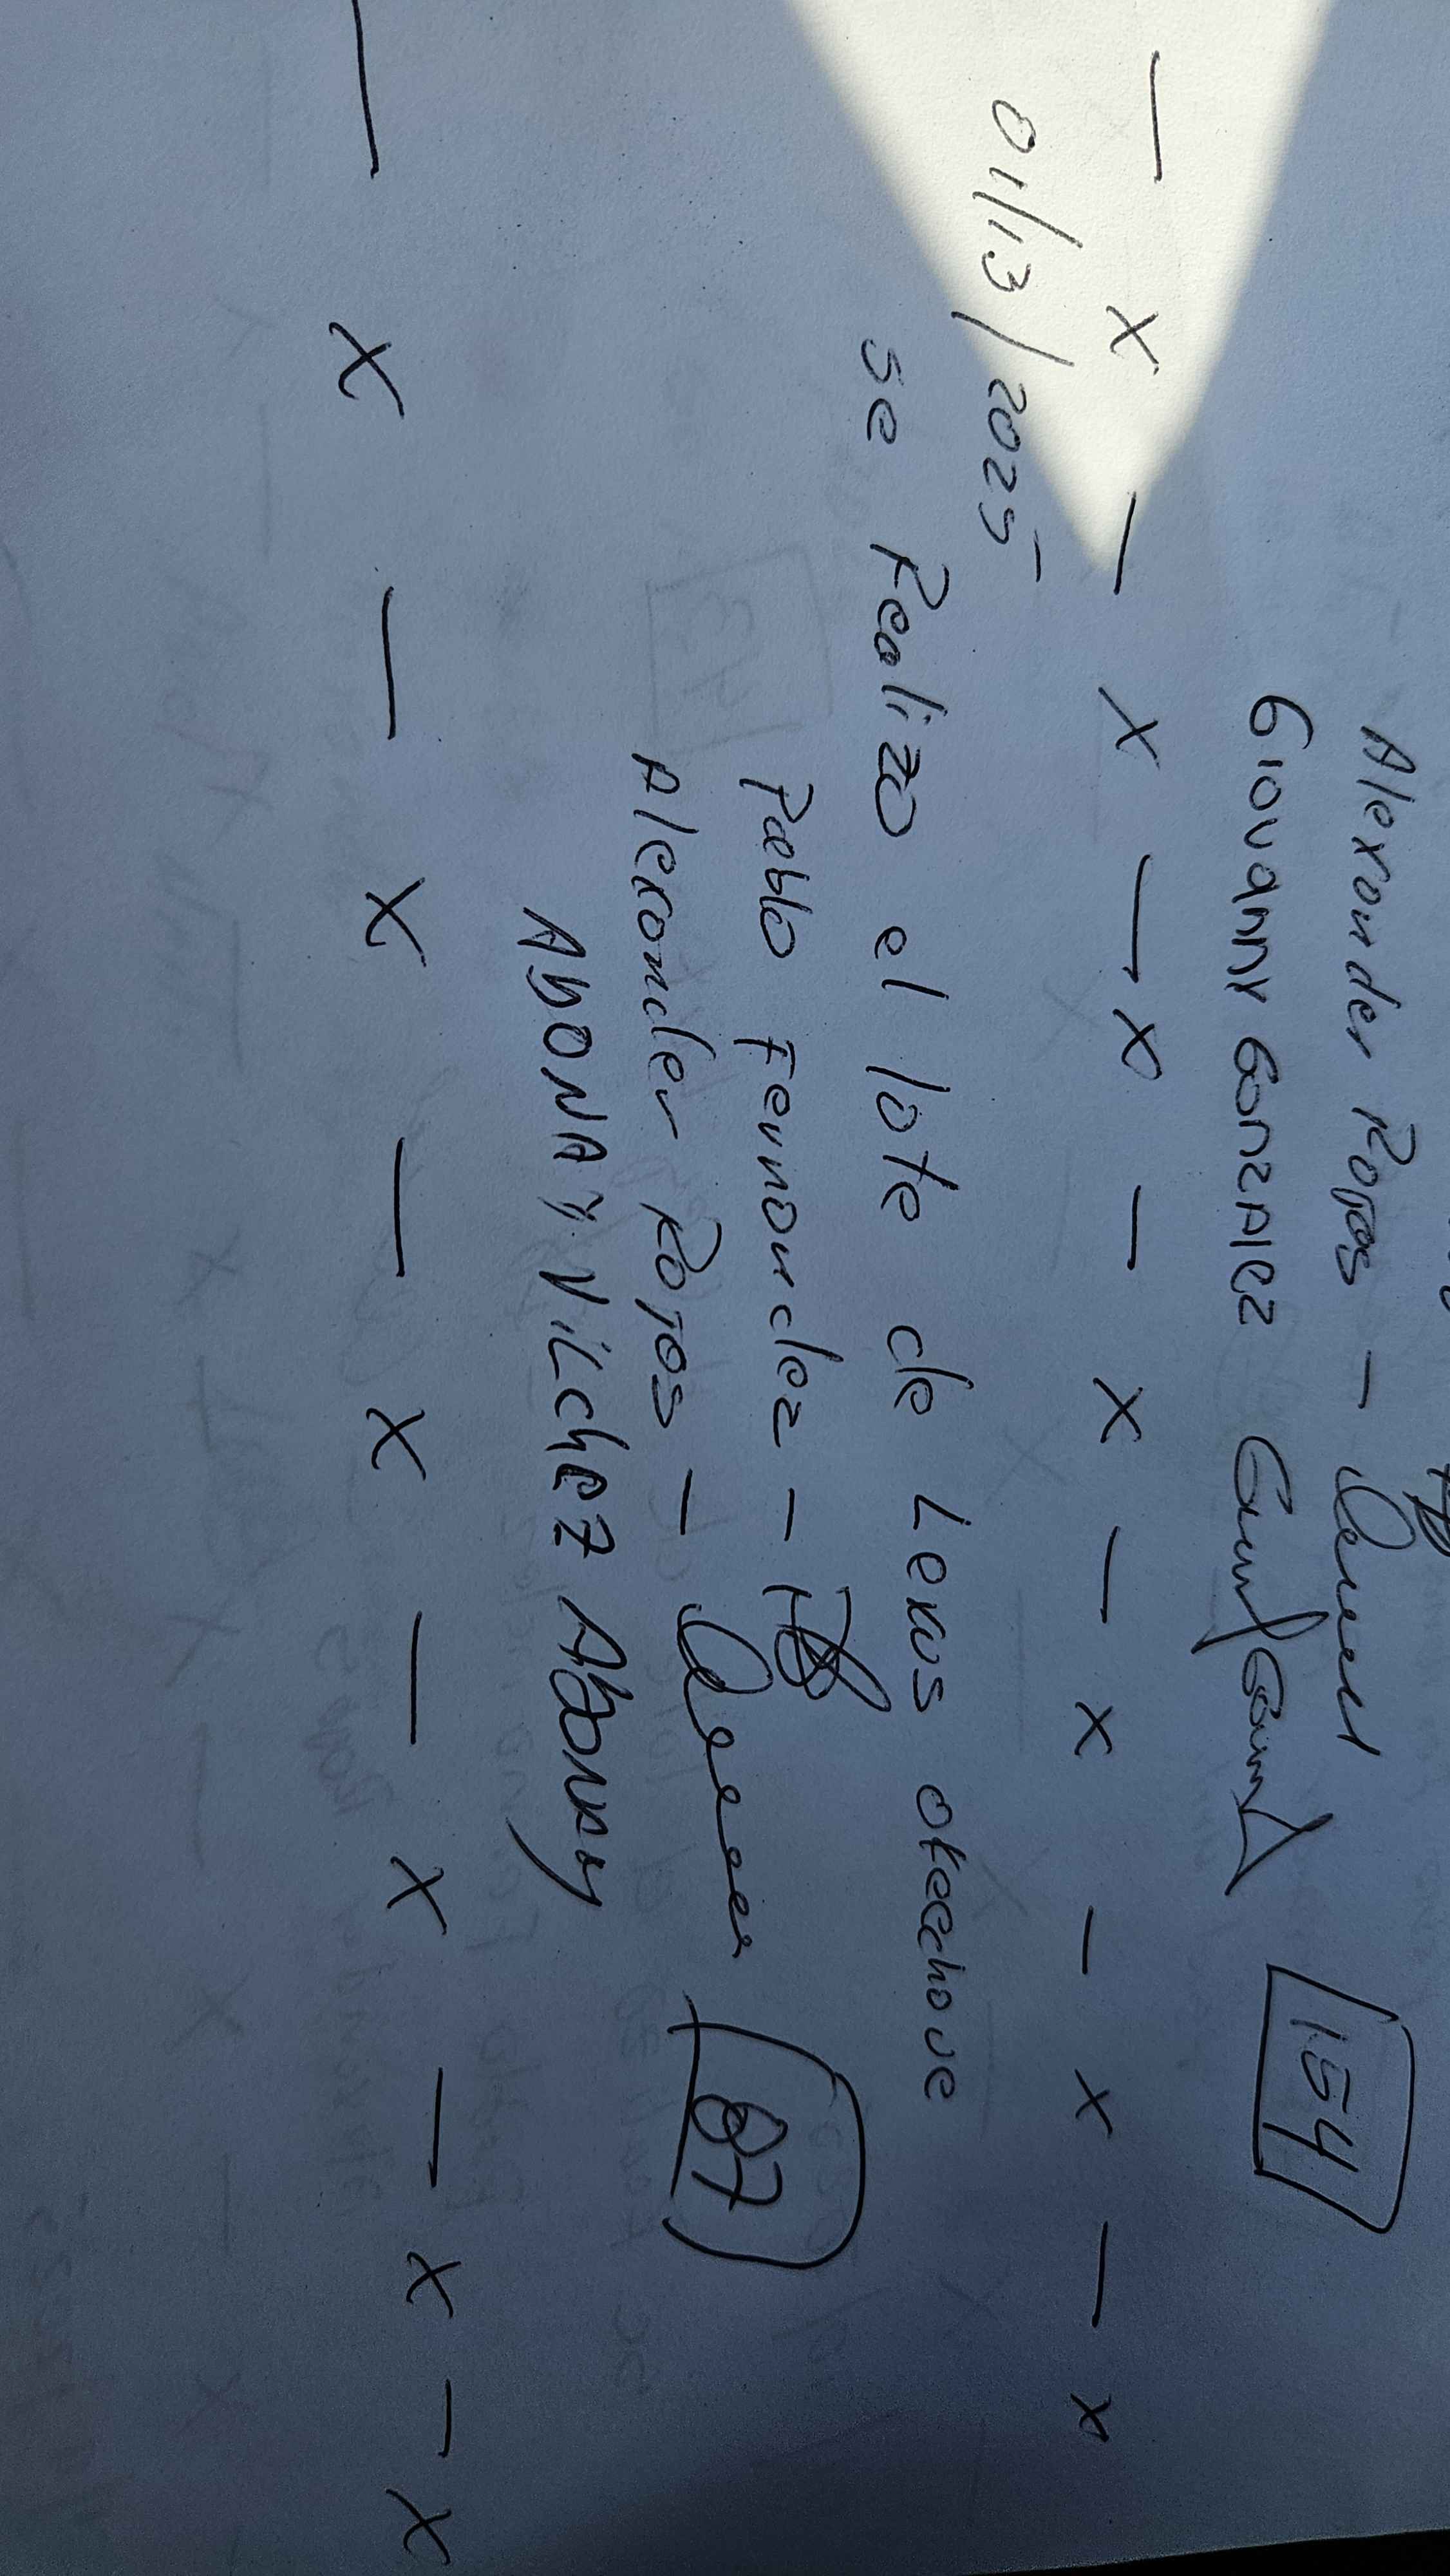 Alexander Rojas -
Giovanny Gonzalez
154
- x - x - x - x - x - x - x - x
01/13/2025
se Realizo el lote de Lexus okechove
Pablo Fernandez -
Alexander Rojas -
87
Abonay Vilchez Abonay
- x - x - x - x - x - x - x